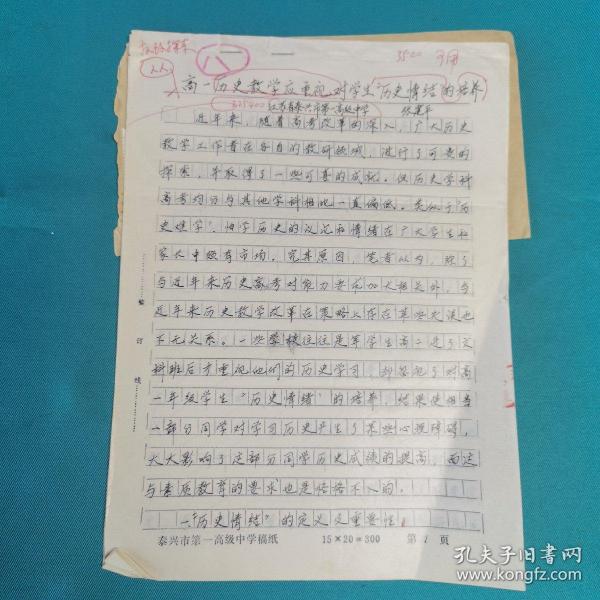 八
3500
二人
高一历史教学应重视对学生“历史情结”的培养
225400 江苏省泰兴市第一高级中学 张建平
近年来，随着高考改革的深入，广大历史
教学工作者在各自的教研领域，进行了可贵的
探索，并取得了一些可喜的成就。但历史学科
高考均分与其他学科相比一直偏低。类似于“历
史难学”、怕学历史的议论和情绪在广大学生和
家长中颇有市场。究其原因，笔者以为，除了
与近年来历史高考对能力要求加大相关外，与
近年来历史教学改革在策略上存在某些欠缺也
不无关系。一些学校往往是等学生高二进了文
科班后才重视他们的历史学习，却忽视了对高
一年级学生“历史情结”的培养，结果使相当
一部分同学对学习历史产生了某些心理障碍，
大大影响了这部分同学历史成绩的提高，而这
与素质教育的要求也是格格不入的。
一、“历史情结”的定义及重要性
装订线
泰兴市第一高级中学稿纸 15×20=300 第1页
孔夫子旧书网